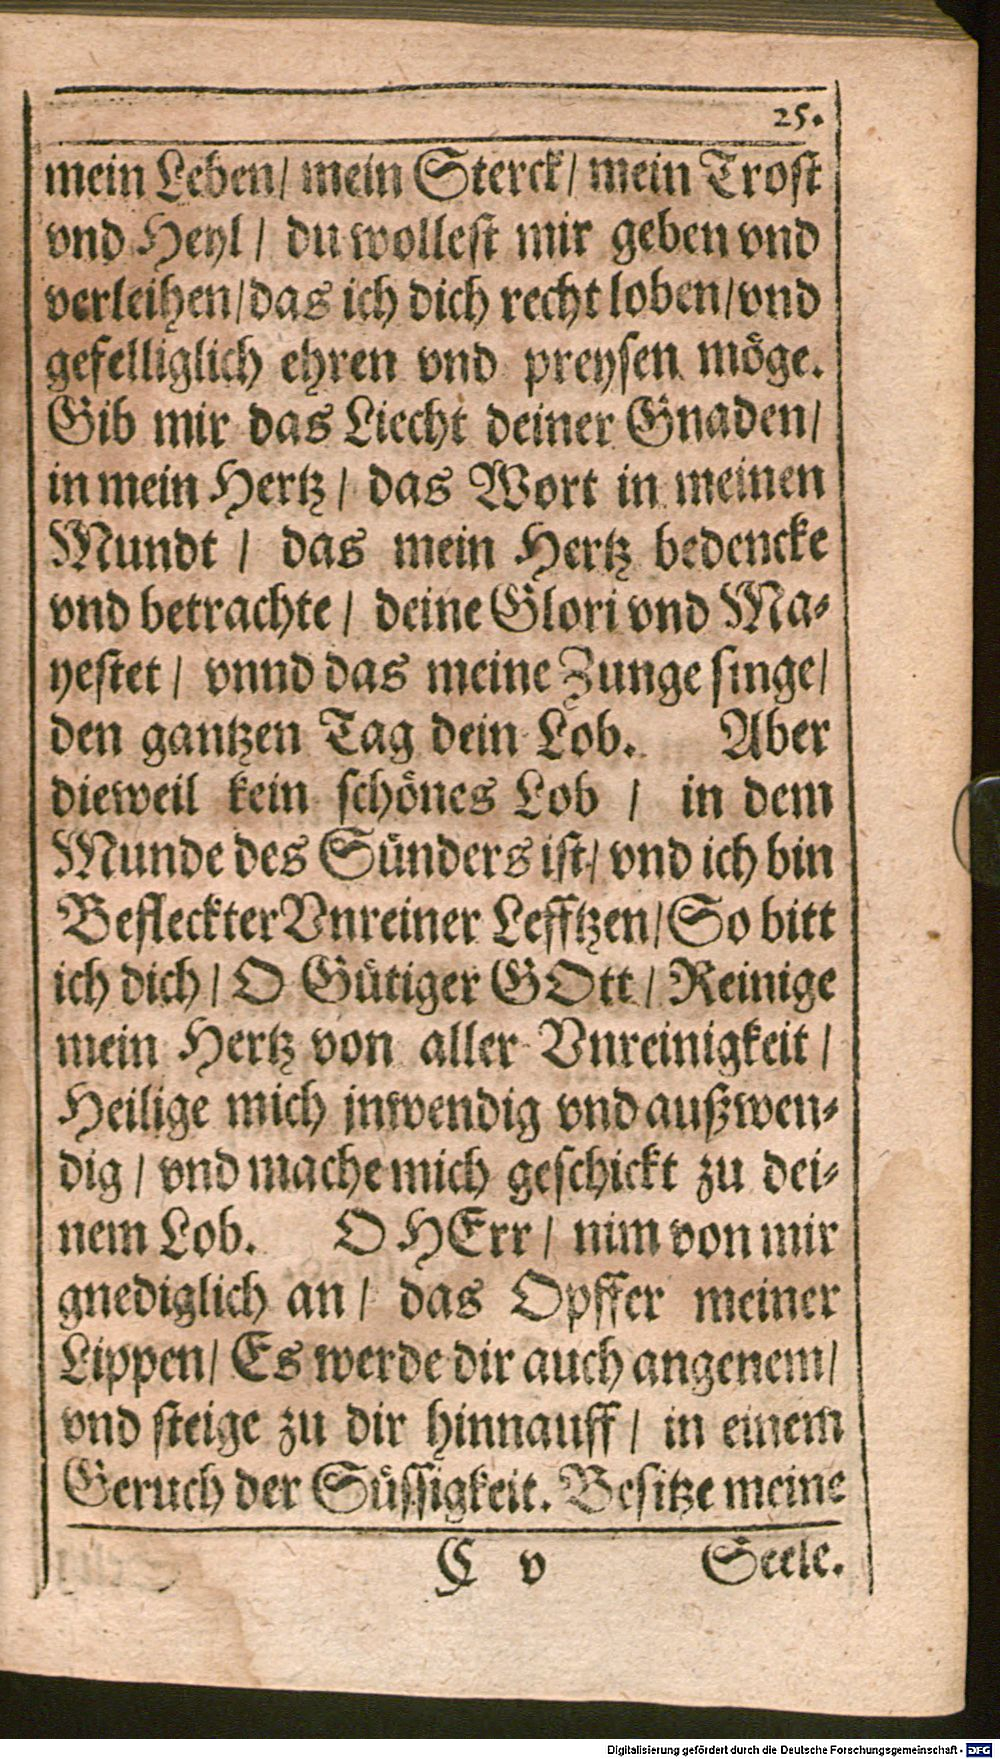 25.
mein Leben/ mein Sterck/ mein Trost
vnd Heyl/ du wollest mir geben vnd
verleihen/das ich dich recht loben/vnd
gefelliglich ehren vnd preysen möge.
Gib mir das Liecht deiner Gnaden/
in mein Hertz/ das Wort in meinen
Mundt/ das mein Hertz bedencke
vnd betrachte/ deine Glori vnd Ma-
yestet/ vnnd das meine Zunge singe/
den gantzen Tag dein Lob. Aber
dieweil kein schönes Lob/ in dem
Munde des Sünders ist/ vnd ich bin
Befleckter Vnreiner Lefftzen/So bitt
ich dich/ O Gütiger GOtt/ Reinige
mein Hertz von aller Vnreinigkeit/
Heilige mich jnwendig vnd außwen-
dig/ vnd mache mich geschickt zu dei-
nem Lob. O HErr/ nim von mir
gnediglich an/ das Opffer meiner
Lippen/ Es werde dir auch angenem/
vnd steige zu dir hinnauff/ in einem
Geruch der Süssigkeit. Besitze meine
C v Seele.
Digitalisierung gefördert durch die Deutsche Forschungsgemeinschaft - DFG